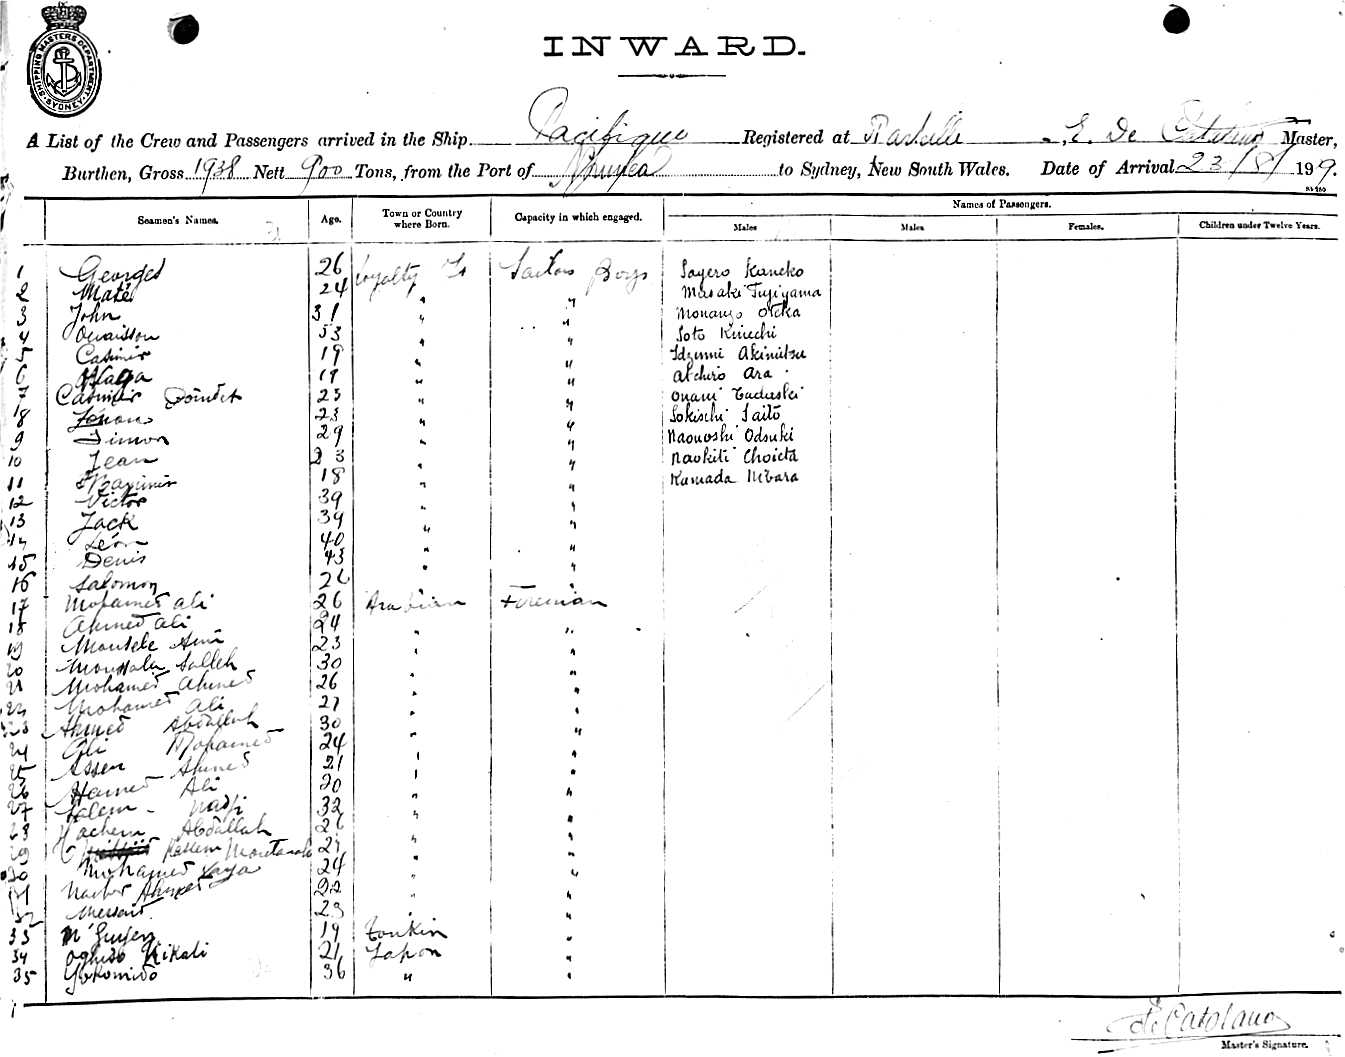 SHIPPING MASTERS DEPARTMENT SYDNEY
INWARD.
A List of the Crew and Passengers arrived in the Ship Pacifique Registered at E. De Master,
Burthen, Gross 1938 Nett 900 Tons, from the Port of Noumea to Sydney, New South Wales. Date of Arrival 23/8/ 1919.
Seamen's Names. Age. Town or Country where Born. Capacity in which engaged. Names of Passengers.
Males Males Females. Children under Twelve Years.
1 Georges 26 Loyalty Is Sailors Boys Sayero Kaneko
2 Maté 24 " " Masaki Tujiyama
3 John 31 " " Oteka
4 53 " " Soto Kiuchi
5 Casimir 19 " " Idzumi Akimitsu
6 19 " " Ara
7 Casimir 23 " " Onani
8 23 " " Sokischi Saito
9 Simon 29 " " Naonoshi Odsuki
10 Jean 23 " " Naokiti Choieta
11 18 " " Kamada Mbara
12 Victor 39 " "
13 Jack 39 " "
14 Léon 40 " "
15 Denis 43 " "
16 Salomon 26 " "
17 Mohamed Ali 26 Arabian Fireman
18 Ahmed Ali 24 " "
19 23 " "
20 Salleh 30 " "
21 Mohamed Ahmed 26 " "
22 Mohamed Ali 27 " "
23 Ahmed Abdallah 30 " "
24 Ali Mohamed 24 " "
25 Assen Ahmed 21 " "
26 Hamed Ali 20 " "
27 Salem - Nadji 32 " "
28 Hachem Abdallah 26 " "
29 Kassem 25 " "
30 Mohamed Yaya 24 " "
31 Ahmed 22 " "
32 Messaid 23 " "
33 N'Guyen 19 Tonkin "
34 Oghiso Kikati 21 Japon "
35 Yokomido 36 " "
E de Catalano
Master's Signature.